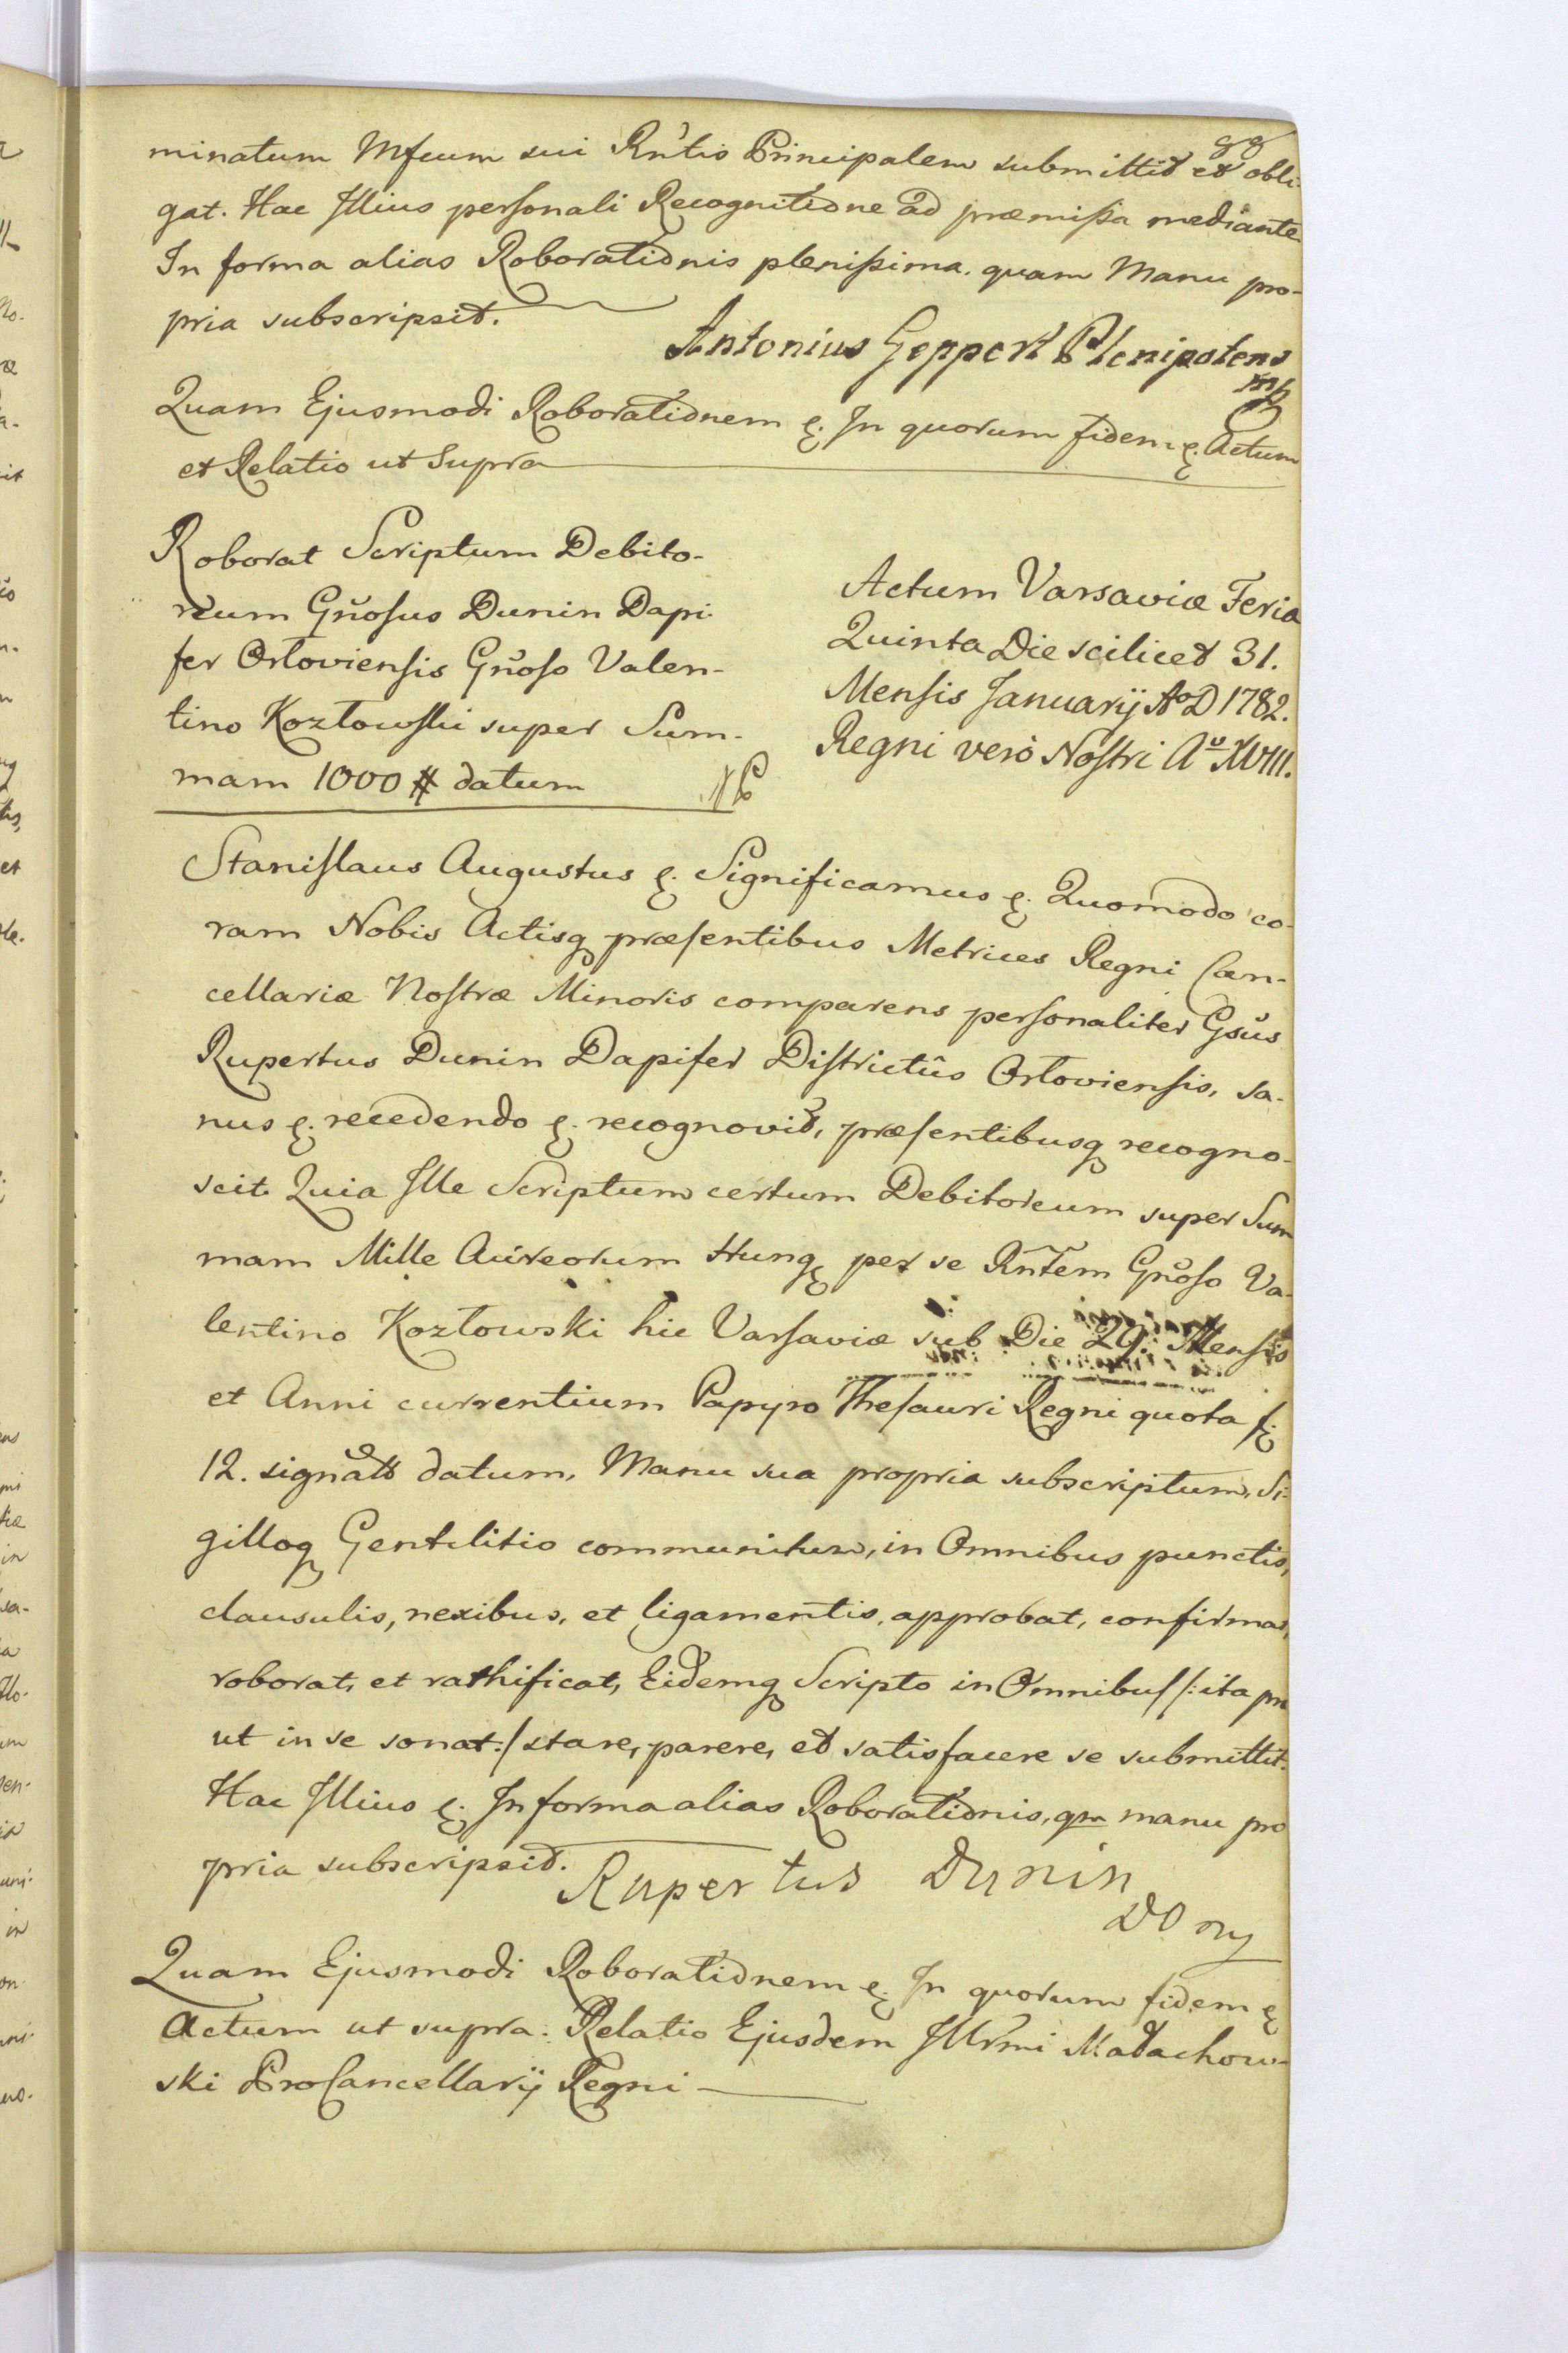 minatum Mfcum sui Rn̄tis Principalem submittit et obli-
gat. Hac Illius personali Recognitione ad præmissa mediante
In forma alias Roborationis plenissima. quam Manu pro-
pria subscripsit.
Antonius Geppert Plenipotens
mp
Quam Ejusmodi Roborationem ę. In quorum fidem ę. Actum
et Relatio ut Supra
Roborat Scriptum Debito-
reum Gn̄osus Dunin Dapi-
fer Orłoviensis Gn̄oso Valen-
tino Kozłowski super Sum-
mam 1000 # datum
Actum Varsaviæ Feria
Quinta Die scilicet 31.
Mensis Januarij Aᵒ D 1782.
Regni verò Nostri Aᵒ XVIII.
Stanislaus Augustus ę. Significamus ę. Quomodo co-
ram Nobis Actisq præsentibus Metrices Regni Can-
cellariæ Nostræ Minoris comparens personaliter Gsūs
Rupertus Dunin Dapifer Districtûs Orłoviensis, sa-
nus ę. recedendo ę. recognovit, præsentibusq recogno-
scit. Quia Ille Scriptum certum Debitoreum super Sum
mam Mille Aureorum Hung per se Rn̄tem Gn̄oso Va-
lentino Kozłowski hic Varsaviæ sub Die 29. Mensis
et Anni currentium Papyro Thesauri Regni quota
12. signato datum, Manu sua propria subscriptum, Si-
gilloq Gentilitio communitum, in Omnibus punctis,
clausulis, nexibus, et ligamentis, approbat, confirmat,
roborat, et rathificat, Eidemq Scripto in Omnibus /: ita pro
ut in se sonat :/ stare, parere, et satisfacere se submittit.
Hac Illius ę. In forma alias Roborationis, qm manu pro
pria subscripsit.
Rupertus Dunin
Quam Ejusmodi Roborationem ę. In quorum fidem ę
Actum ut supra. Relatio Ejusdem Illrmi Małachow-
ski ProCancellarij Regni